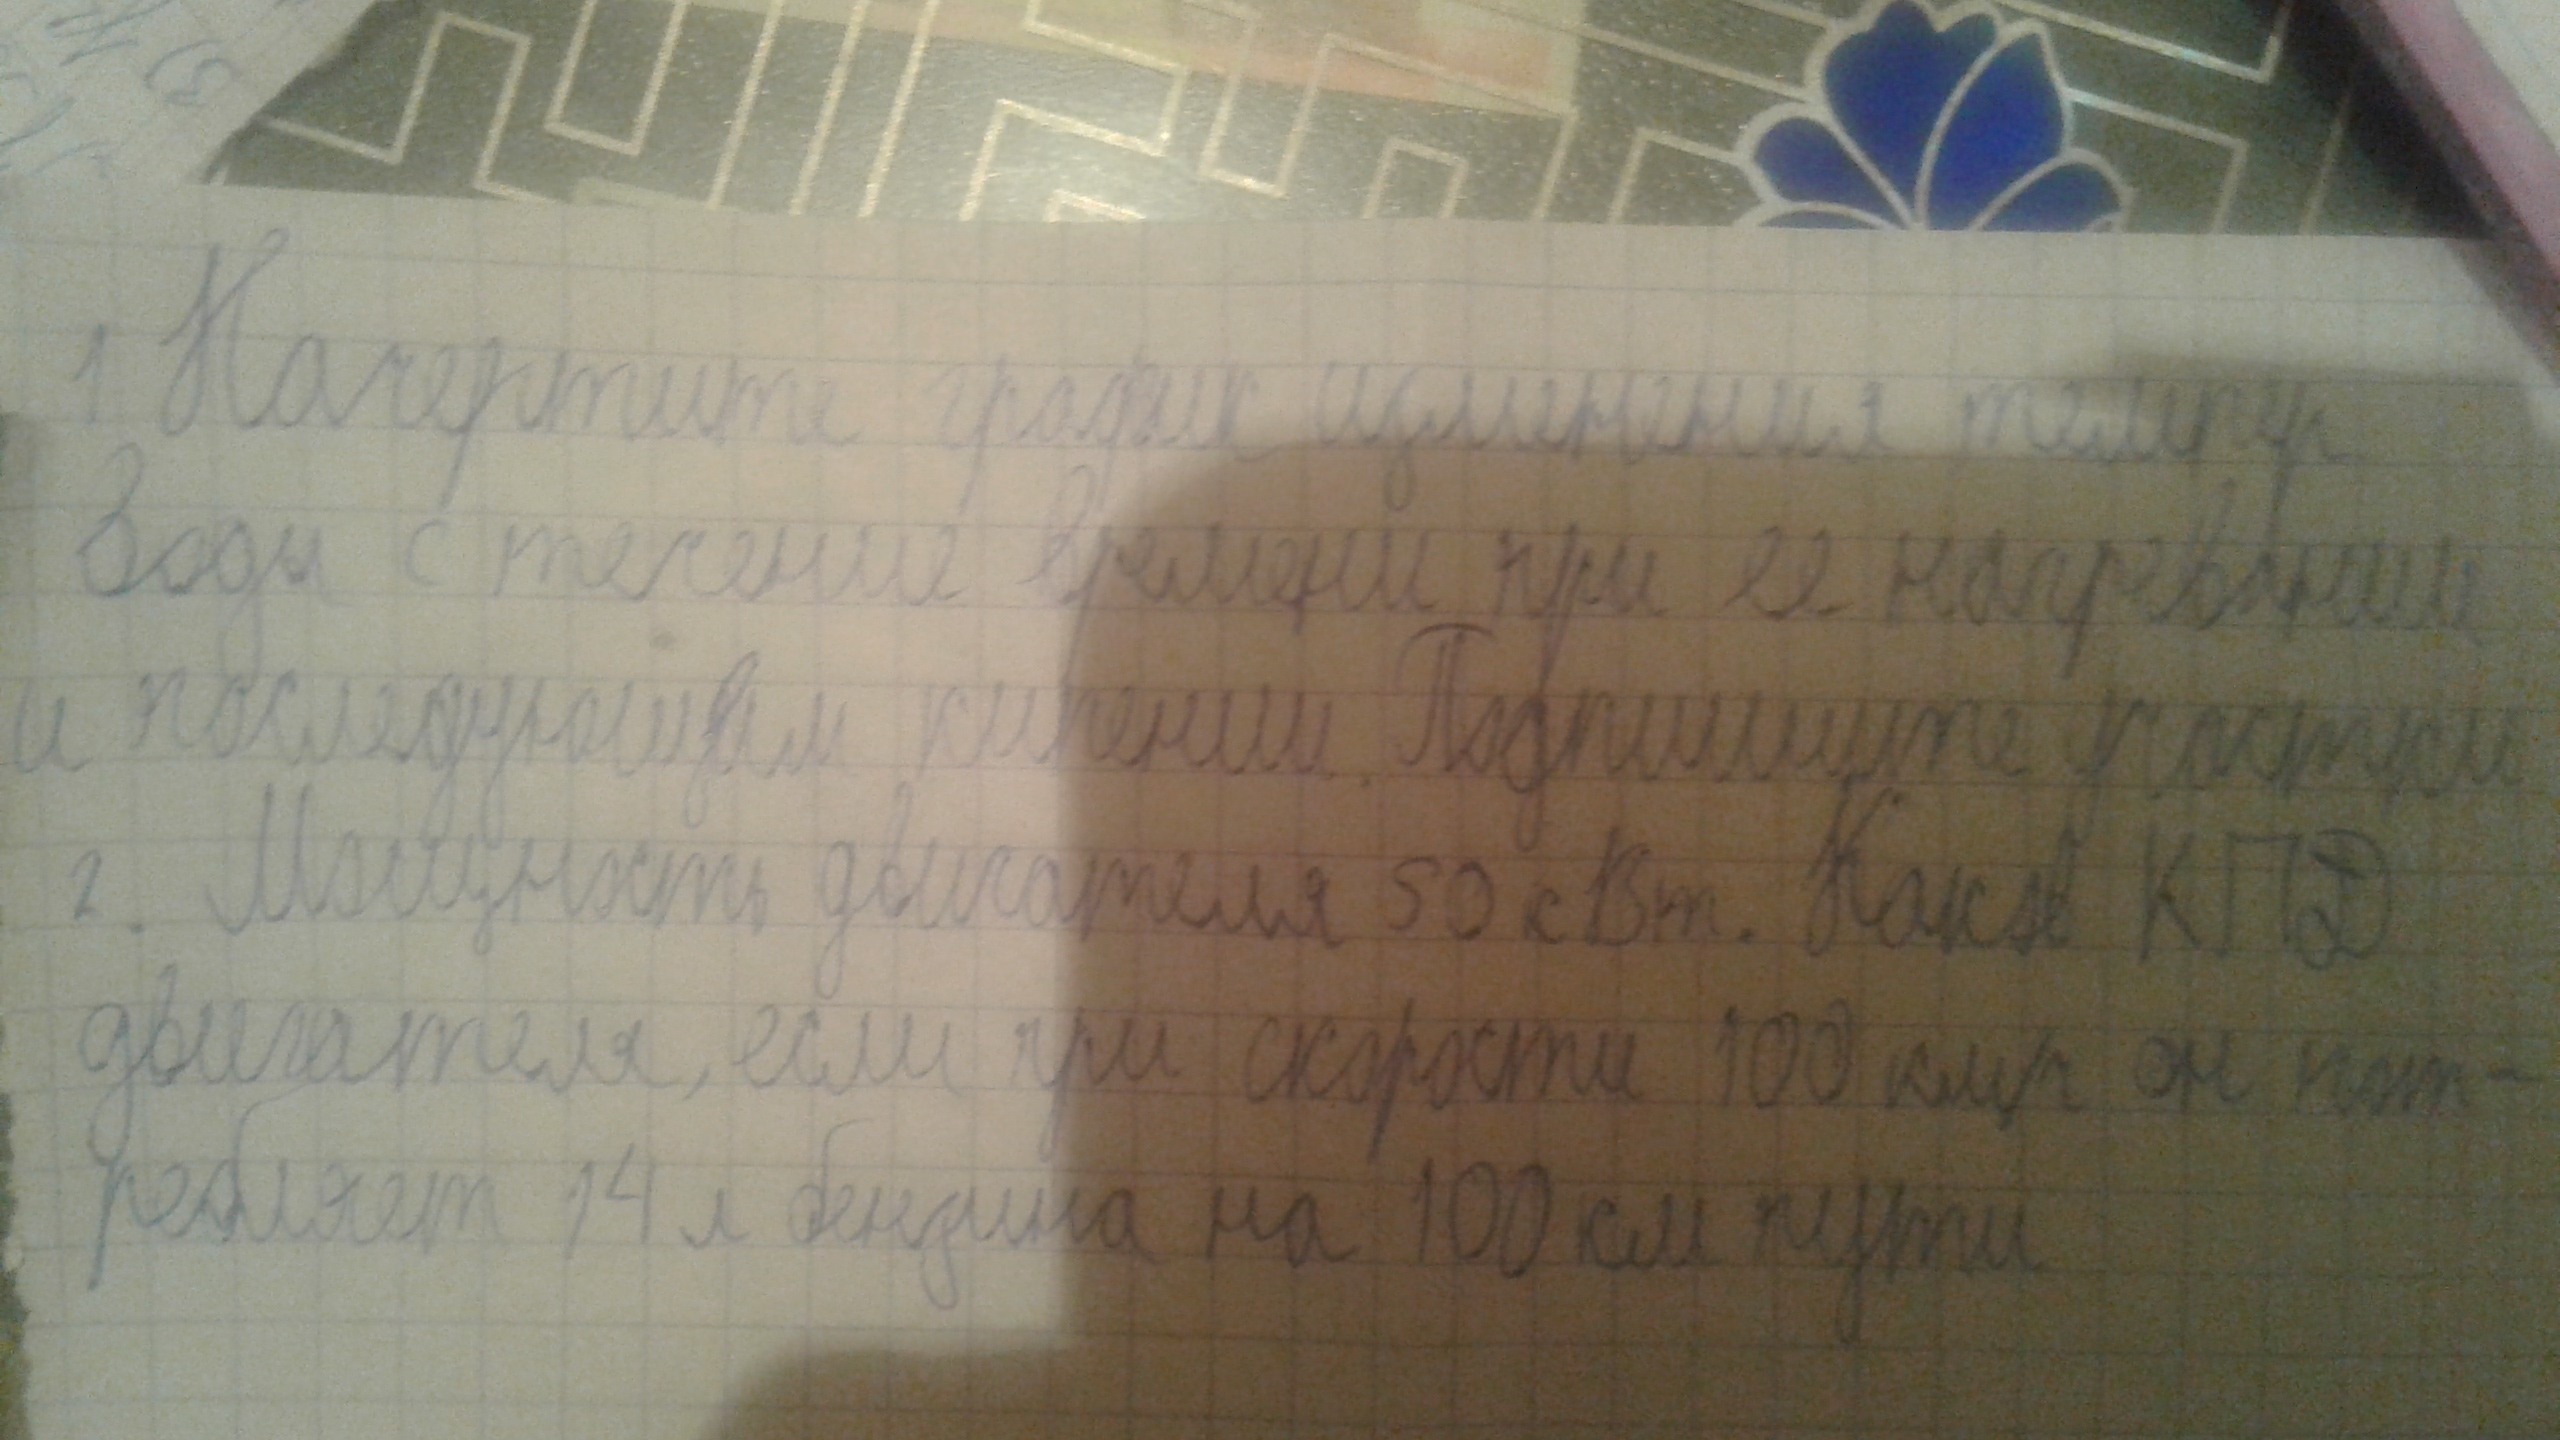 1 Начертите график изменения темпер
воды с течение времени при ее нагревании
и последующем кипении. Подпишите участки
2. Мощность двигателя 50 кВт. Каков КПД
двигателя, если при скорости 100 км/ч он пот-
ребляет 14 л бензина на 100 км пути